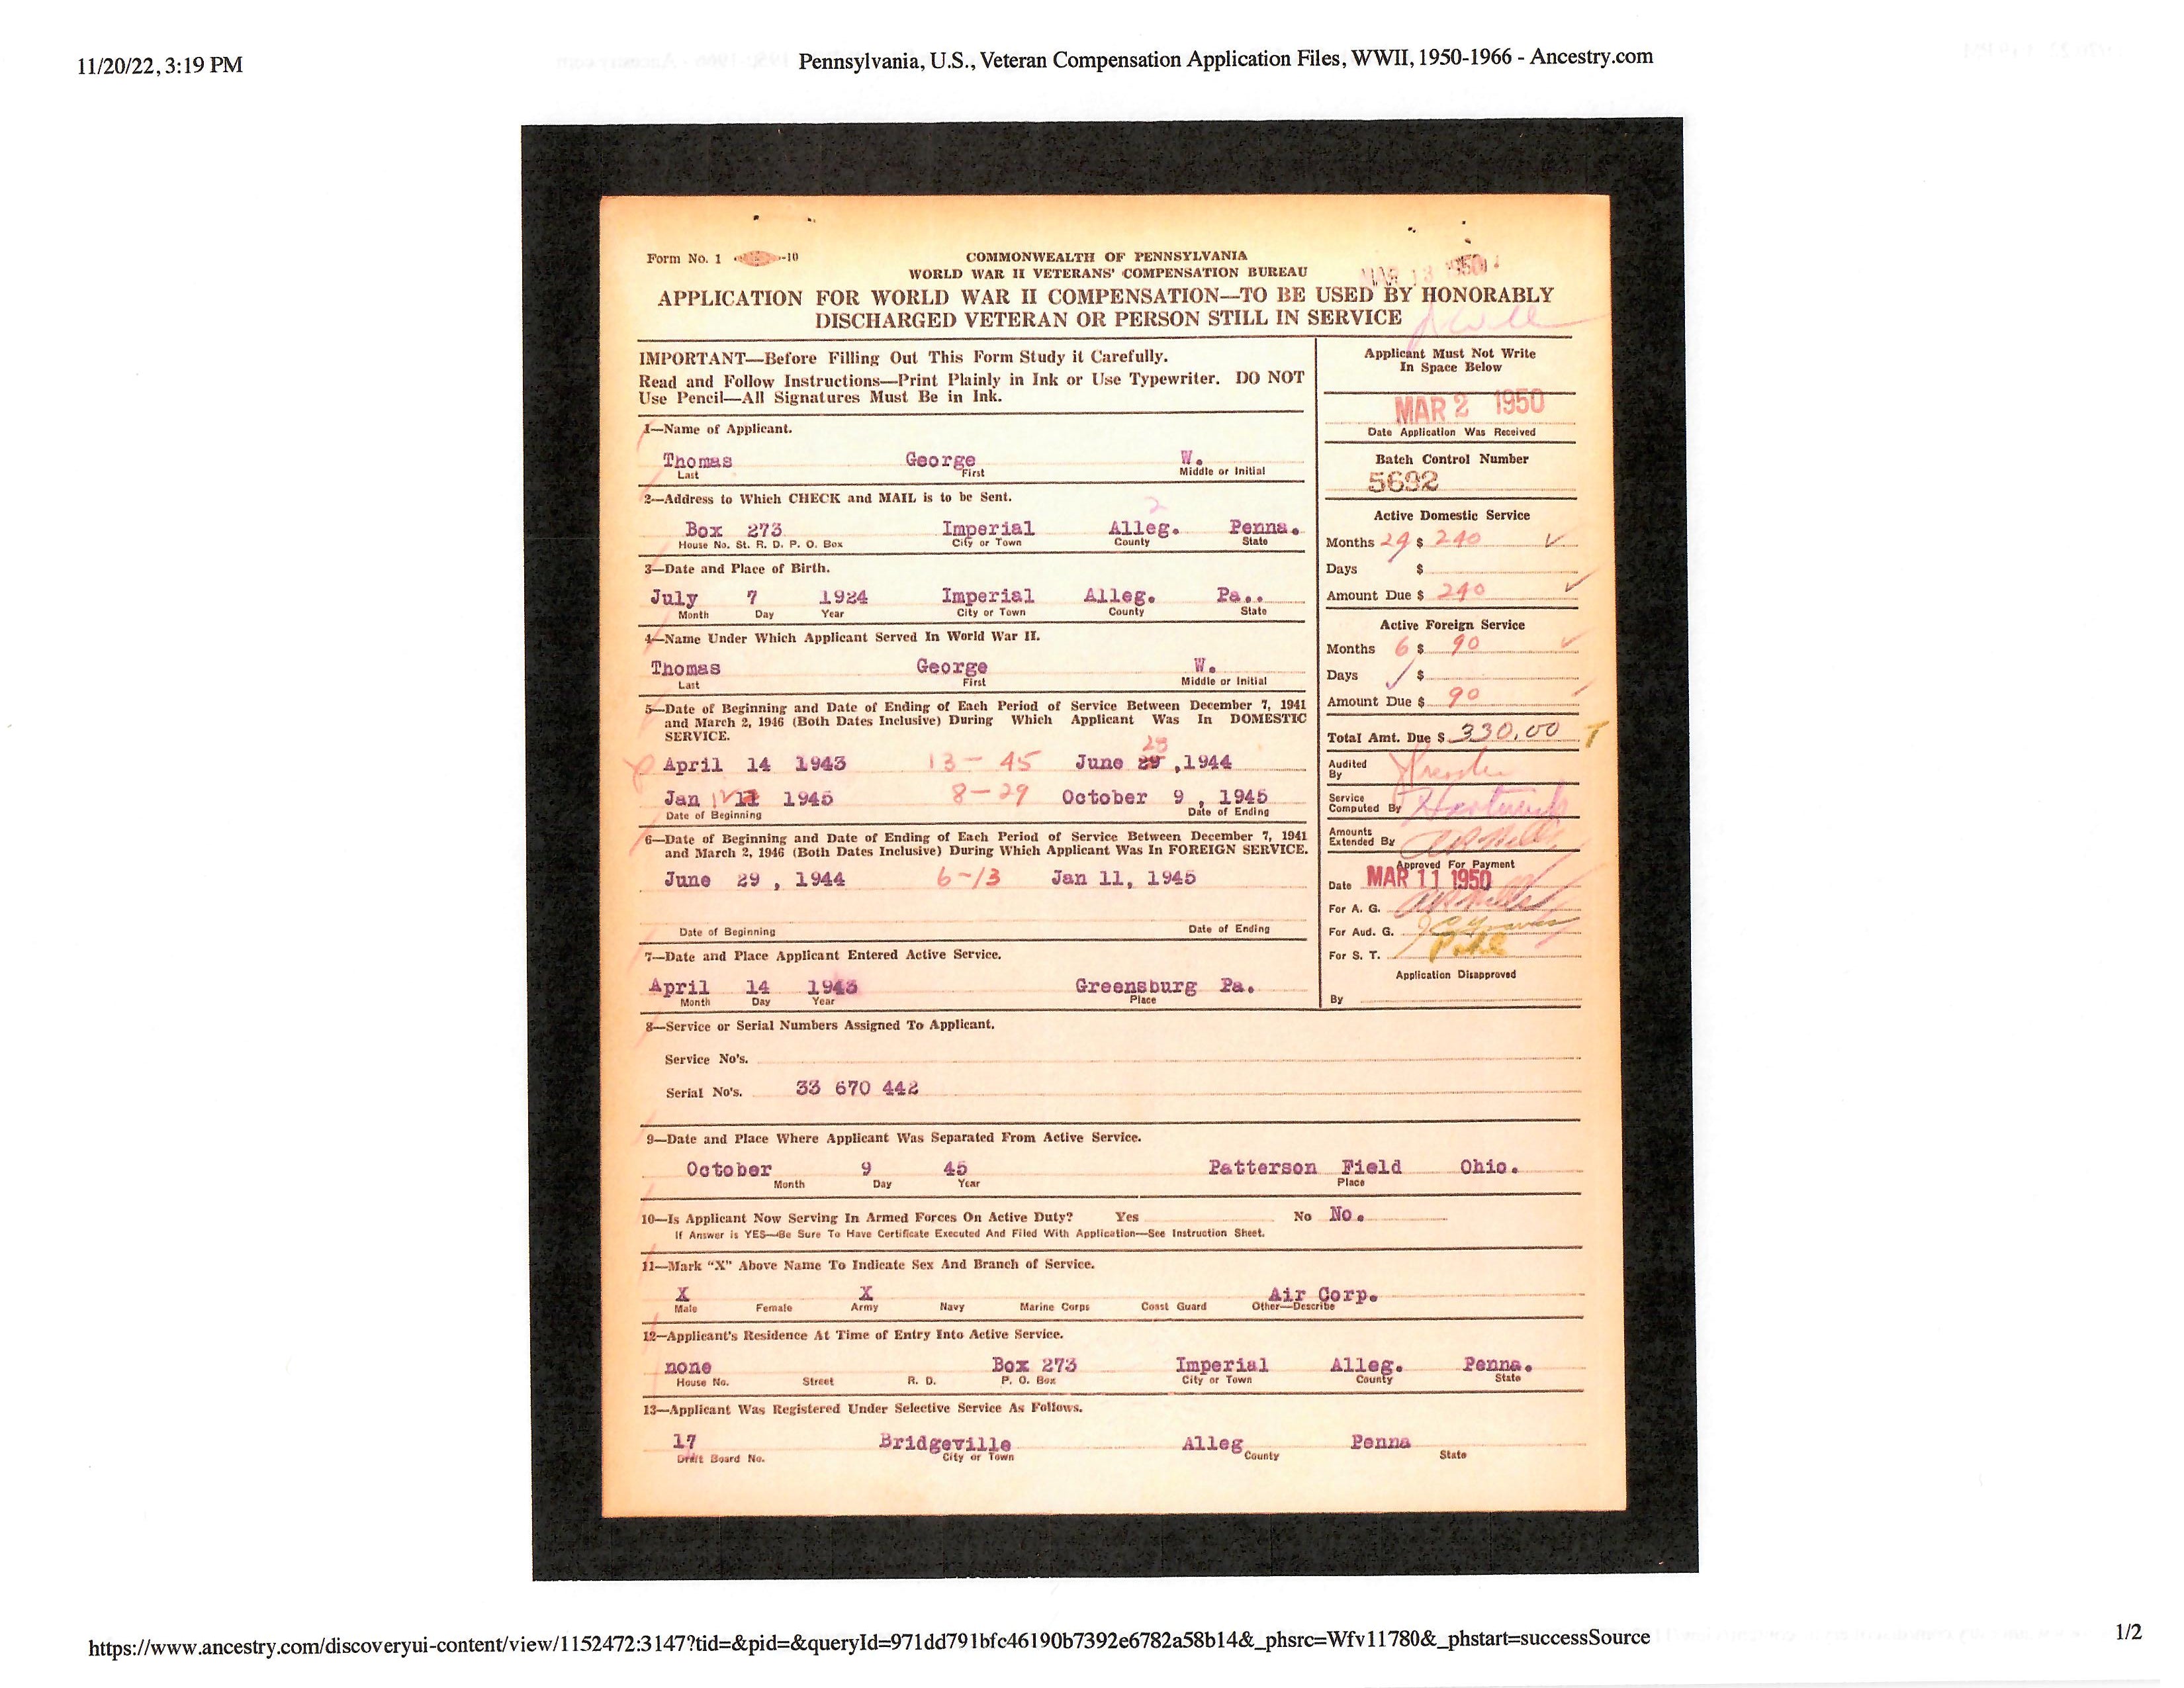 11/20/22, 3:19 PM
Pennsylvania, U.S., Veteran Compensation Application Files, WWII, 1950-1966 - Ancestry.com
Form No. 1 -10
COMMONWEALTH OF PENNSYLVANIA
WORLD WAR II VETERANS' COMPENSATION BUREAU
MAR 13 1950
APPLICATION FOR WORLD WAR II COMPENSATION—TO BE USED BY HONORABLY
DISCHARGED VETERAN OR PERSON STILL IN SERVICE
IMPORTANT—Before Filling Out This Form Study it Carefully.
Read and Follow Instructions—Print Plainly in Ink or Use Typewriter. DO NOT
Use Pencil—All Signatures Must Be in Ink.
1—Name of Applicant.
Thomas George W.
Last First Middle or Initial
2—Address to Which CHECK and MAIL is to be Sent.
2
Box 273 Imperial Alleg. Penna.
House No. St. R. D. P. O. Box City or Town County State
3—Date and Place of Birth.
July 7 1924 Imperial Alleg. Pa..
Month Day Year City or Town County State
4—Name Under Which Applicant Served In World War II.
Thomas George W.
Last First Middle or Initial
5—Date of Beginning and Date of Ending of Each Period of Service Between December 7, 1941
and March 2, 1946 (Both Dates Inclusive) During Which Applicant Was In DOMESTIC
SERVICE.
28
April 14 1943 13-45 June 29 ,1944
Jan 12 11 1945 8-29 October 9 , 1945
Date of Beginning Date of Ending
6—Date of Beginning and Date of Ending of Each Period of Service Between December 7, 1941
and March 2, 1946 (Both Dates Inclusive) During Which Applicant Was In FOREIGN SERVICE.
June 29 , 1944 6-13 Jan 11, 1945
Date of Beginning Date of Ending
7—Date and Place Applicant Entered Active Service.
April 14 1943 Greensburg Pa.
Month Day Year Place
Applicant Must Not Write
In Space Below
MAR 2 1950
Date Application Was Received
Batch Control Number
5692
Active Domestic Service
Months 24 $ 240
Days $
Amount Due $ 240
Active Foreign Service
Months 6 $ 90
Days $
Amount Due $ 90
Total Amt. Due $ 330.00
Audited
By
Service
Computed By
Amounts
Extended By
Approved For Payment
Date MAR 11 1950
For A. G.
For Aud. G.
For S. T.
Application Disapproved
By
8—Service or Serial Numbers Assigned To Applicant.
Service No's.
Serial No's. 33 670 442
9—Date and Place Where Applicant Was Separated From Active Service.
October 9 45 Patterson Field Ohio.
Month Day Year Place
10—Is Applicant Now Serving In Armed Forces On Active Duty? Yes No No.
If Answer is YES—Be Sure To Have Certificate Executed And Filed With Application—See Instruction Sheet.
11—Mark "X" Above Name To Indicate Sex And Branch of Service.
X X Air Corp.
Male Female Army Navy Marine Corps Coast Guard Other—Describe
12—Applicant's Residence At Time of Entry Into Active Service.
none Box 273 Imperial Alleg. Penna.
House No. Street R. D. P. O. Box City or Town County State
13—Applicant Was Registered Under Selective Service As Follows.
17 Bridgeville Alleg Penna
Draft Board No. City or Town County State
https://www.ancestry.com/discoveryui-content/view/1152472:3147?tid=&pid=&queryId=971dd791bfc46190b7392e6782a58b14&_phsrc=Wfv11780&_phstart=successSource
1/2